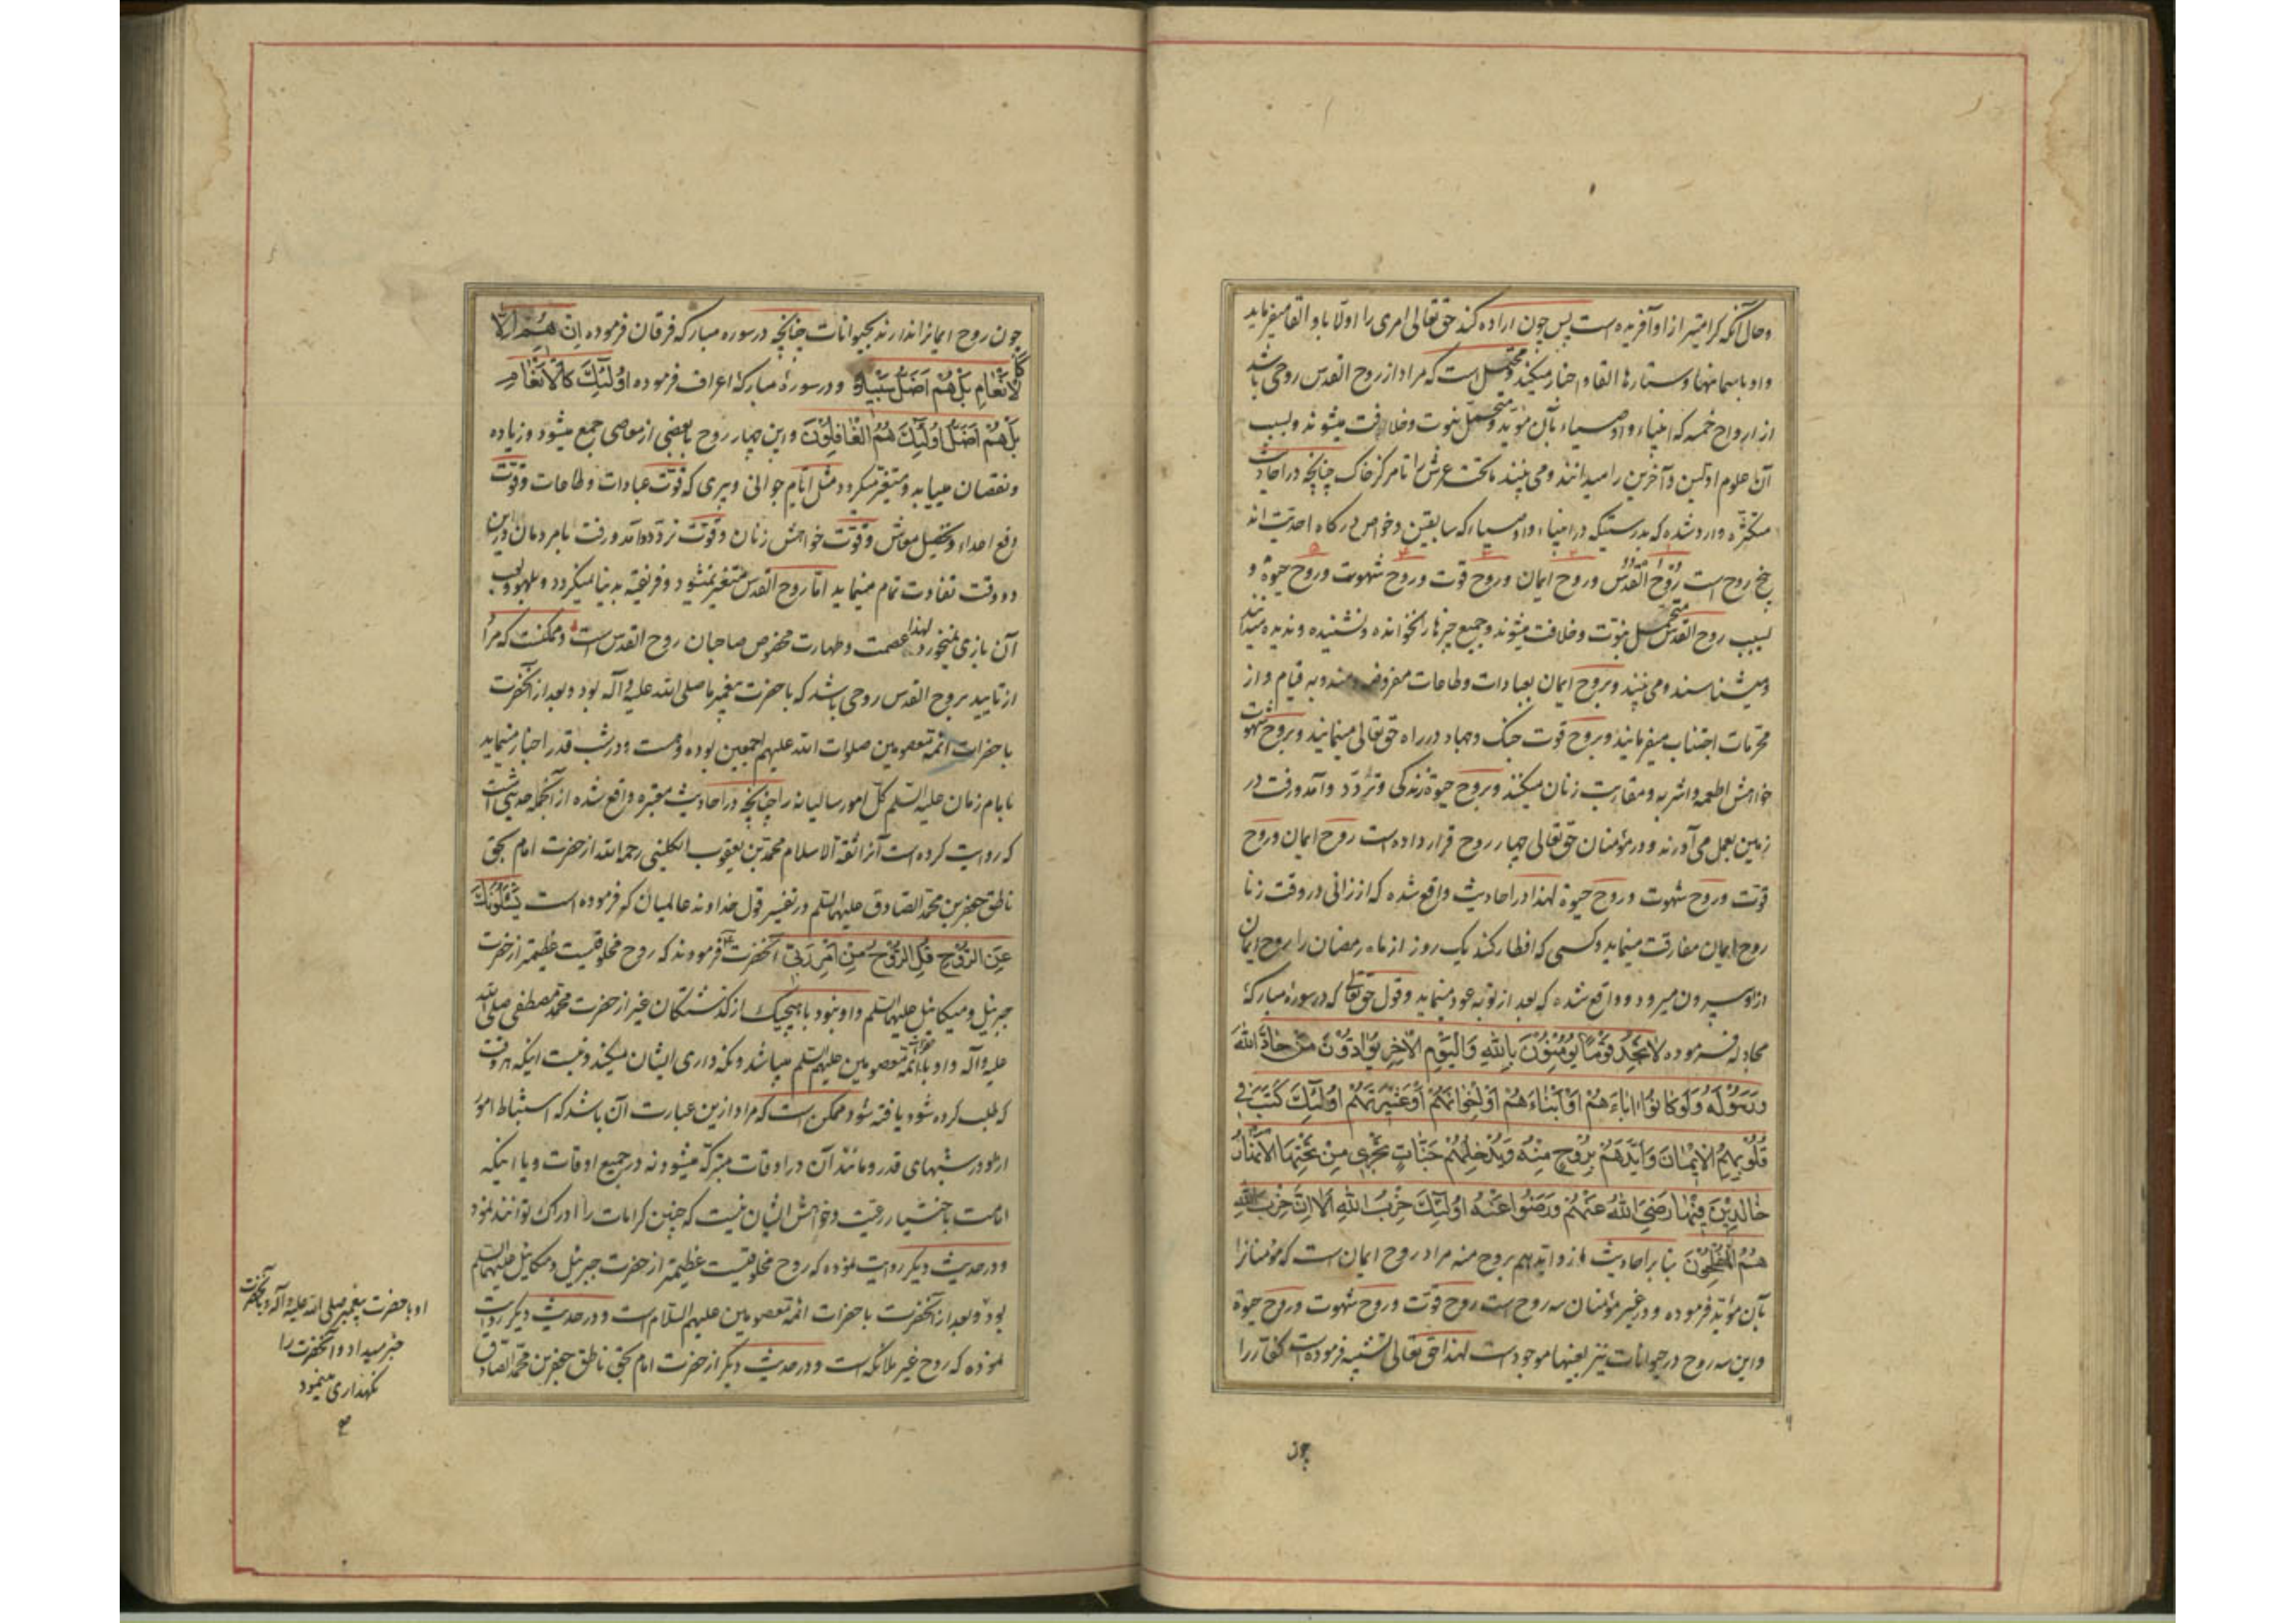 وحال آنکه گرامیتر از او آفریده است پس چون اراده کند حق تعالی امری را اولا باو القا میفرماید
واو باسمانها وستارها القا و اخبار میکند ومحتمل است که مراد از روح القدس روحی باشد
از ارواح خمسه که انبیاء واوصیاء بآن مؤید ومتحمل نبوت وخلافت میشوند وبسبب
آن علوم اولین وآخرین را میدانند ومی بینند ماتحت عرش را تا مرکز خاک چنانچه در احادیث
متکثره وارد شده که بدرستیکه در انبیاء واوصیاء که سابقین وخواص درگاه احدیت اند
پنج روح است روح القدس وروح ایمان وروح قوت وروح شهوت وروح حیوة و
بسبب روح القدس متحمل نبوت وخلافت میشوند وجمیع چیزها را نخوانده ونشنیده وندیده میدانند
ومیشناسند ومی بینند وبروح ایمان بعبادات وطاعات مفروضه ومندوبه قیام واز
محرمات اجتناب میفرمایند وبروح قوت جنک وجهاد در راه حق تعالی مینمایند وبروح شهوت
خواهش اطعمه واشربه ومقاربت زنان میکنند وبروح حیوة زندگی وتردد وآمد ورفت در
زمین بعمل می آورند ودر مؤمنان حق تعالی چهار روح قرار داده است روح ایمان وروح
قوت وروح شهوت وروح حیوة لهذا در احادیث واقع شده که از زانی در وقت زنا
روح ایمان مفارقت مینماید وکسی که افطار کند یک روز از ماه رمضان را روح ایمان
از او بیرون میرود وواقع شده که بعد از توبه عود مینماید وقول حق تعالی که در سورهٔ مبارکهٔ
مجادله فرموده لا تَجِدُ قَوْمًا يُؤْمِنُونَ بِاللهِ وَالْيَوْمِ الْآخِرِ يُوَادُّونَ مَنْ حَادَّ اللهَ
وَرَسُولَهُ وَلَوْ كَانُوا اٰبَاءَهُمْ اَوْ اَبْنَاءَهُمْ اَوْ اِخْوَانَهُمْ اَوْ عَشِيرَتَهُمْ اُولٰئِكَ كَتَبَ فِي
قُلُوبِهِمُ الْاِيمَانَ وَاَيَّدَهُمْ بِرُوحٍ مِنْهُ وَيُدْخِلُهُمْ جَنَّاتٍ تَجْرِي مِنْ تَحْتِهَا الْاَنْهَارُ
خَالِدِينَ فِيهَا رَضِيَ اللهُ عَنْهُمْ وَرَضُوا عَنْهُ اُولٰئِكَ حِزْبُ اللهِ اَلَا اِنَّ حِزْبَ اللهِ
هُمُ الْمُفْلِحُونَ بنا بر احادیث از وایدهم بروح منه مراد روح ایمان است که مؤمنانرا
بآن مؤید فرموده ودر غیر مؤمنان سه روح است روح قوت وروح شهوت وروح حیوة
واین سه روح در حیوانات نیز بعینها موجود است لهذا حق تعالی تشبیه فرموده است کفار را
چون
چون روح ایمانرا ندارند بحیوانات چنانچه در سوره مبارکه فرقان فرموده اِنْ هُمْ اِلَّا
كَالْاَنْعَامِ بَلْ هُمْ اَضَلُّ سَبِيلًا ودر سورهٔ مبارکهٔ اعراف فرموده اُولٰئِكَ كَالْاَنْعَامِ
بَلْ هُمْ اَضَلُّ اُولٰئِكَ هُمُ الْغَافِلُونَ واین چهار روح با بعضی از معاصی جمع میشود وزیاده
ونقصان مییابد ومتغیر میگردد مثل ایام جوانی وپیری که قوت عبادات وطاعات وقوت
دفع اعداء وتحصیل معاش وقوت خواهش زنان وقوت تردد وآمد ورفت با مردمان در این
دو وقت تفاوت تمام مینماید اما روح القدس متغیر نمیشود وفریفته بدنیا نمیگردد وبلهو ولعب
آن بازی نمیخورد لهذا عصمت وطهارت مخصوص صاحبان روح القدس است وممکنست که مراد
از تایید بروح القدس روحی باشد که با حضرت پیغمبر ما صلی الله علیه وآله بود وبعد از آنحضرت
با حضرات ائمه معصومین صلوات الله علیهم اجمعین بوده وهست ودر شب قدر اخبار مینماید
بامام زمان علیه السلم کل امور سالیانه را چنانچه در احادیث معتبره واقع شده از آنجمله حدیثی است
که روایت کرده است آنرا ثقة الاسلام محمد بن یعقوب الکلینی رحمه الله از حضرت امام بحق
ناطق جعفر بن محمد الصادق علیهما السلم در تفسیر قول خداوند عالمیان که فرموده است يَسْئَلُونَكَ
عَنِ الرُّوحِ قُلِ الرُّوحُ مِنْ اَمْرِ رَبِّي آنحضرت فرمودند که روح مخلوقیست عظیمتر از حضرت
جبرئیل ومیکائیل علیهما السلم واو نبود با هیچیک از گذشتگان غیر از حضرت محمد مصطفی صلی الله
علیه وآله واو با حضرات ائمه معصومین علیهم السلم میباشد ونکه داری ایشان میکند ونیست اینکه هر وقت
که طلب کرده شود یافته شود ممکن است که مراد ازین عبارت آن باشد که استنباط امور
از او در شبهای قدر ومانند آن در اوقات متبرکه میشود نه در جمیع اوقات ویا اینکه
امامت باختیار رعیت وخواهش ایشان نیست که چنین کرامات را ادراک توانند نمود
ودر حدیث دیگر روایت نموده که روح مخلوقیست عظیمتر از حضرت جبرئیل ومیکائیل علیهما السلم
بود وبعد از آنحضرت با حضرات ائمه معصومین علیهم السلام است ودر حدیث دیگر روایت
نموده که روح غیر ملائکه است ودر حدیث دیگر از حضرت امام بحق ناطق جعفر بن محمد الصادق
او با حضرت پیغمبر صلی الله علیه وآله وبآنحضرت
خبر میداد وآنحضرت را
نگهداری مینمود